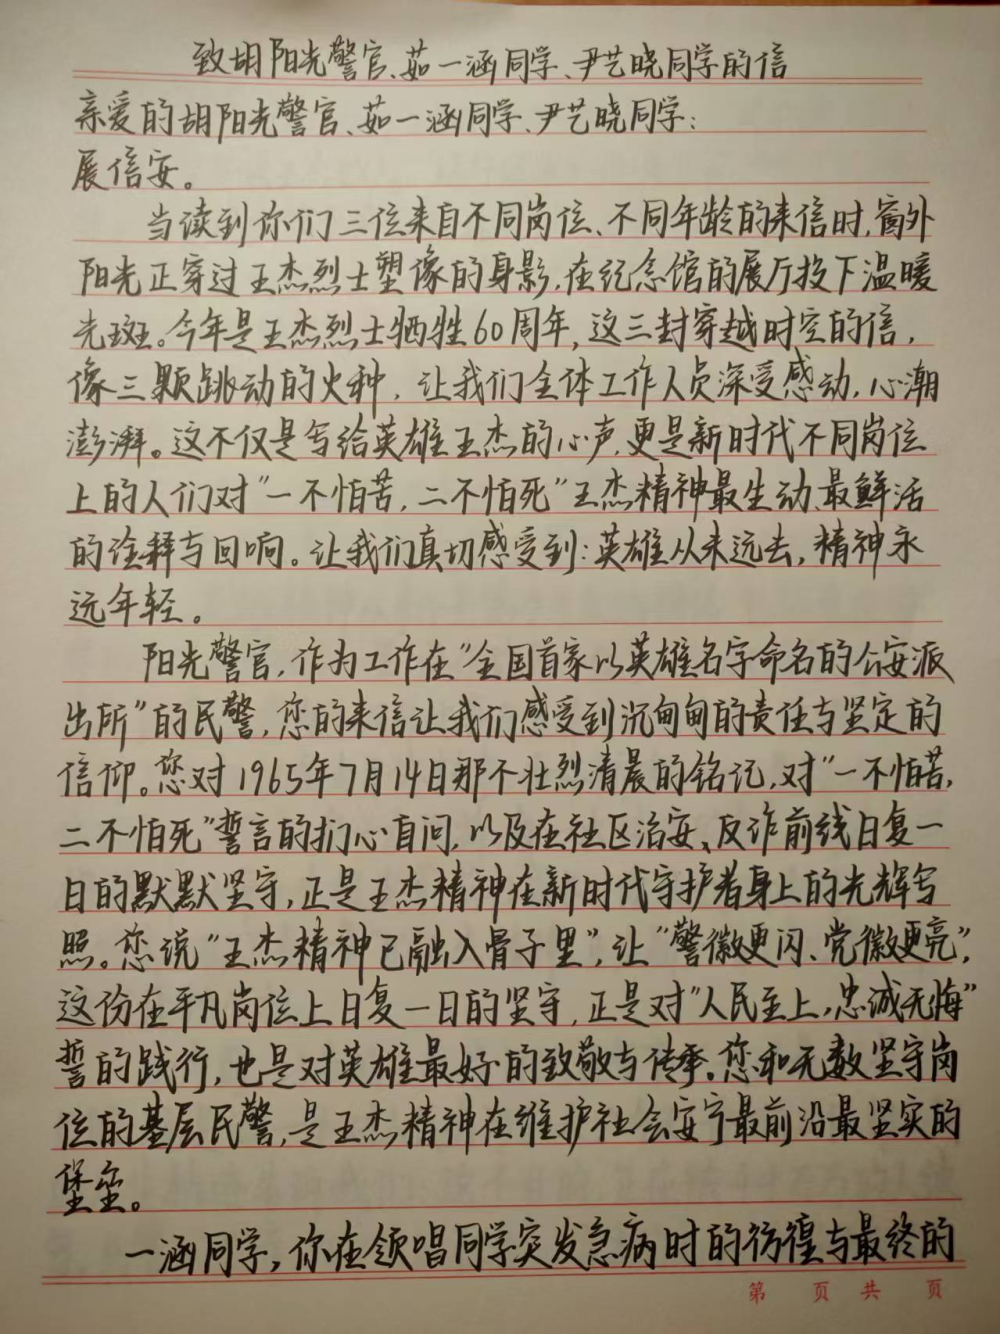 致胡阳光警官、茹一涵同学、尹艺晓同学的信
亲爱的胡阳光警官、茹一涵同学、尹艺晓同学：
展信安。
当读到你们三位来自不同岗位、不同年龄的来信时，窗外
阳光正穿过王杰烈士塑像的身影，在纪念馆的展厅投下温暖
光斑。今年是王杰烈士牺牲60周年，这三封穿越时空的信，
像三颗跳动的火种，让我们全体工作人员深受感动，心潮
澎湃。这不仅是写给英雄王杰的心声，更是新时代不同岗位
上的人们对“一不怕苦，二不怕死”王杰精神最生动、最鲜活
的诠释与回响。让我们真切感受到：英雄从未远去，精神永
远年轻。
阳光警官，作为工作在“全国首家以英雄名字命名的公安派
出所”的民警，您的来信让我们感受到沉甸甸的责任与坚定的
信仰。您对1965年7月14日那个壮烈清晨的铭记，对“一不怕苦，
二不怕死”誓言的扪心自问，以及在社区治安、反诈前线日复一
日的默默坚守，正是王杰精神在新时代守护者身上的光辉写
照。您说“王杰精神已融入骨子里”，让“警徽更闪、党徽更亮”，
这份在平凡岗位上日复一日的坚守，正是对“人民至上，忠诚无悔”
誓的践行，也是对英雄最好的致敬与传承。您和无数坚守岗
位的基层民警，是王杰精神在维护社会安宁最前沿最坚实的
堡垒。
一涵同学，你在领唱同学突发急病时的彷徨与最终的
第 页 共 页